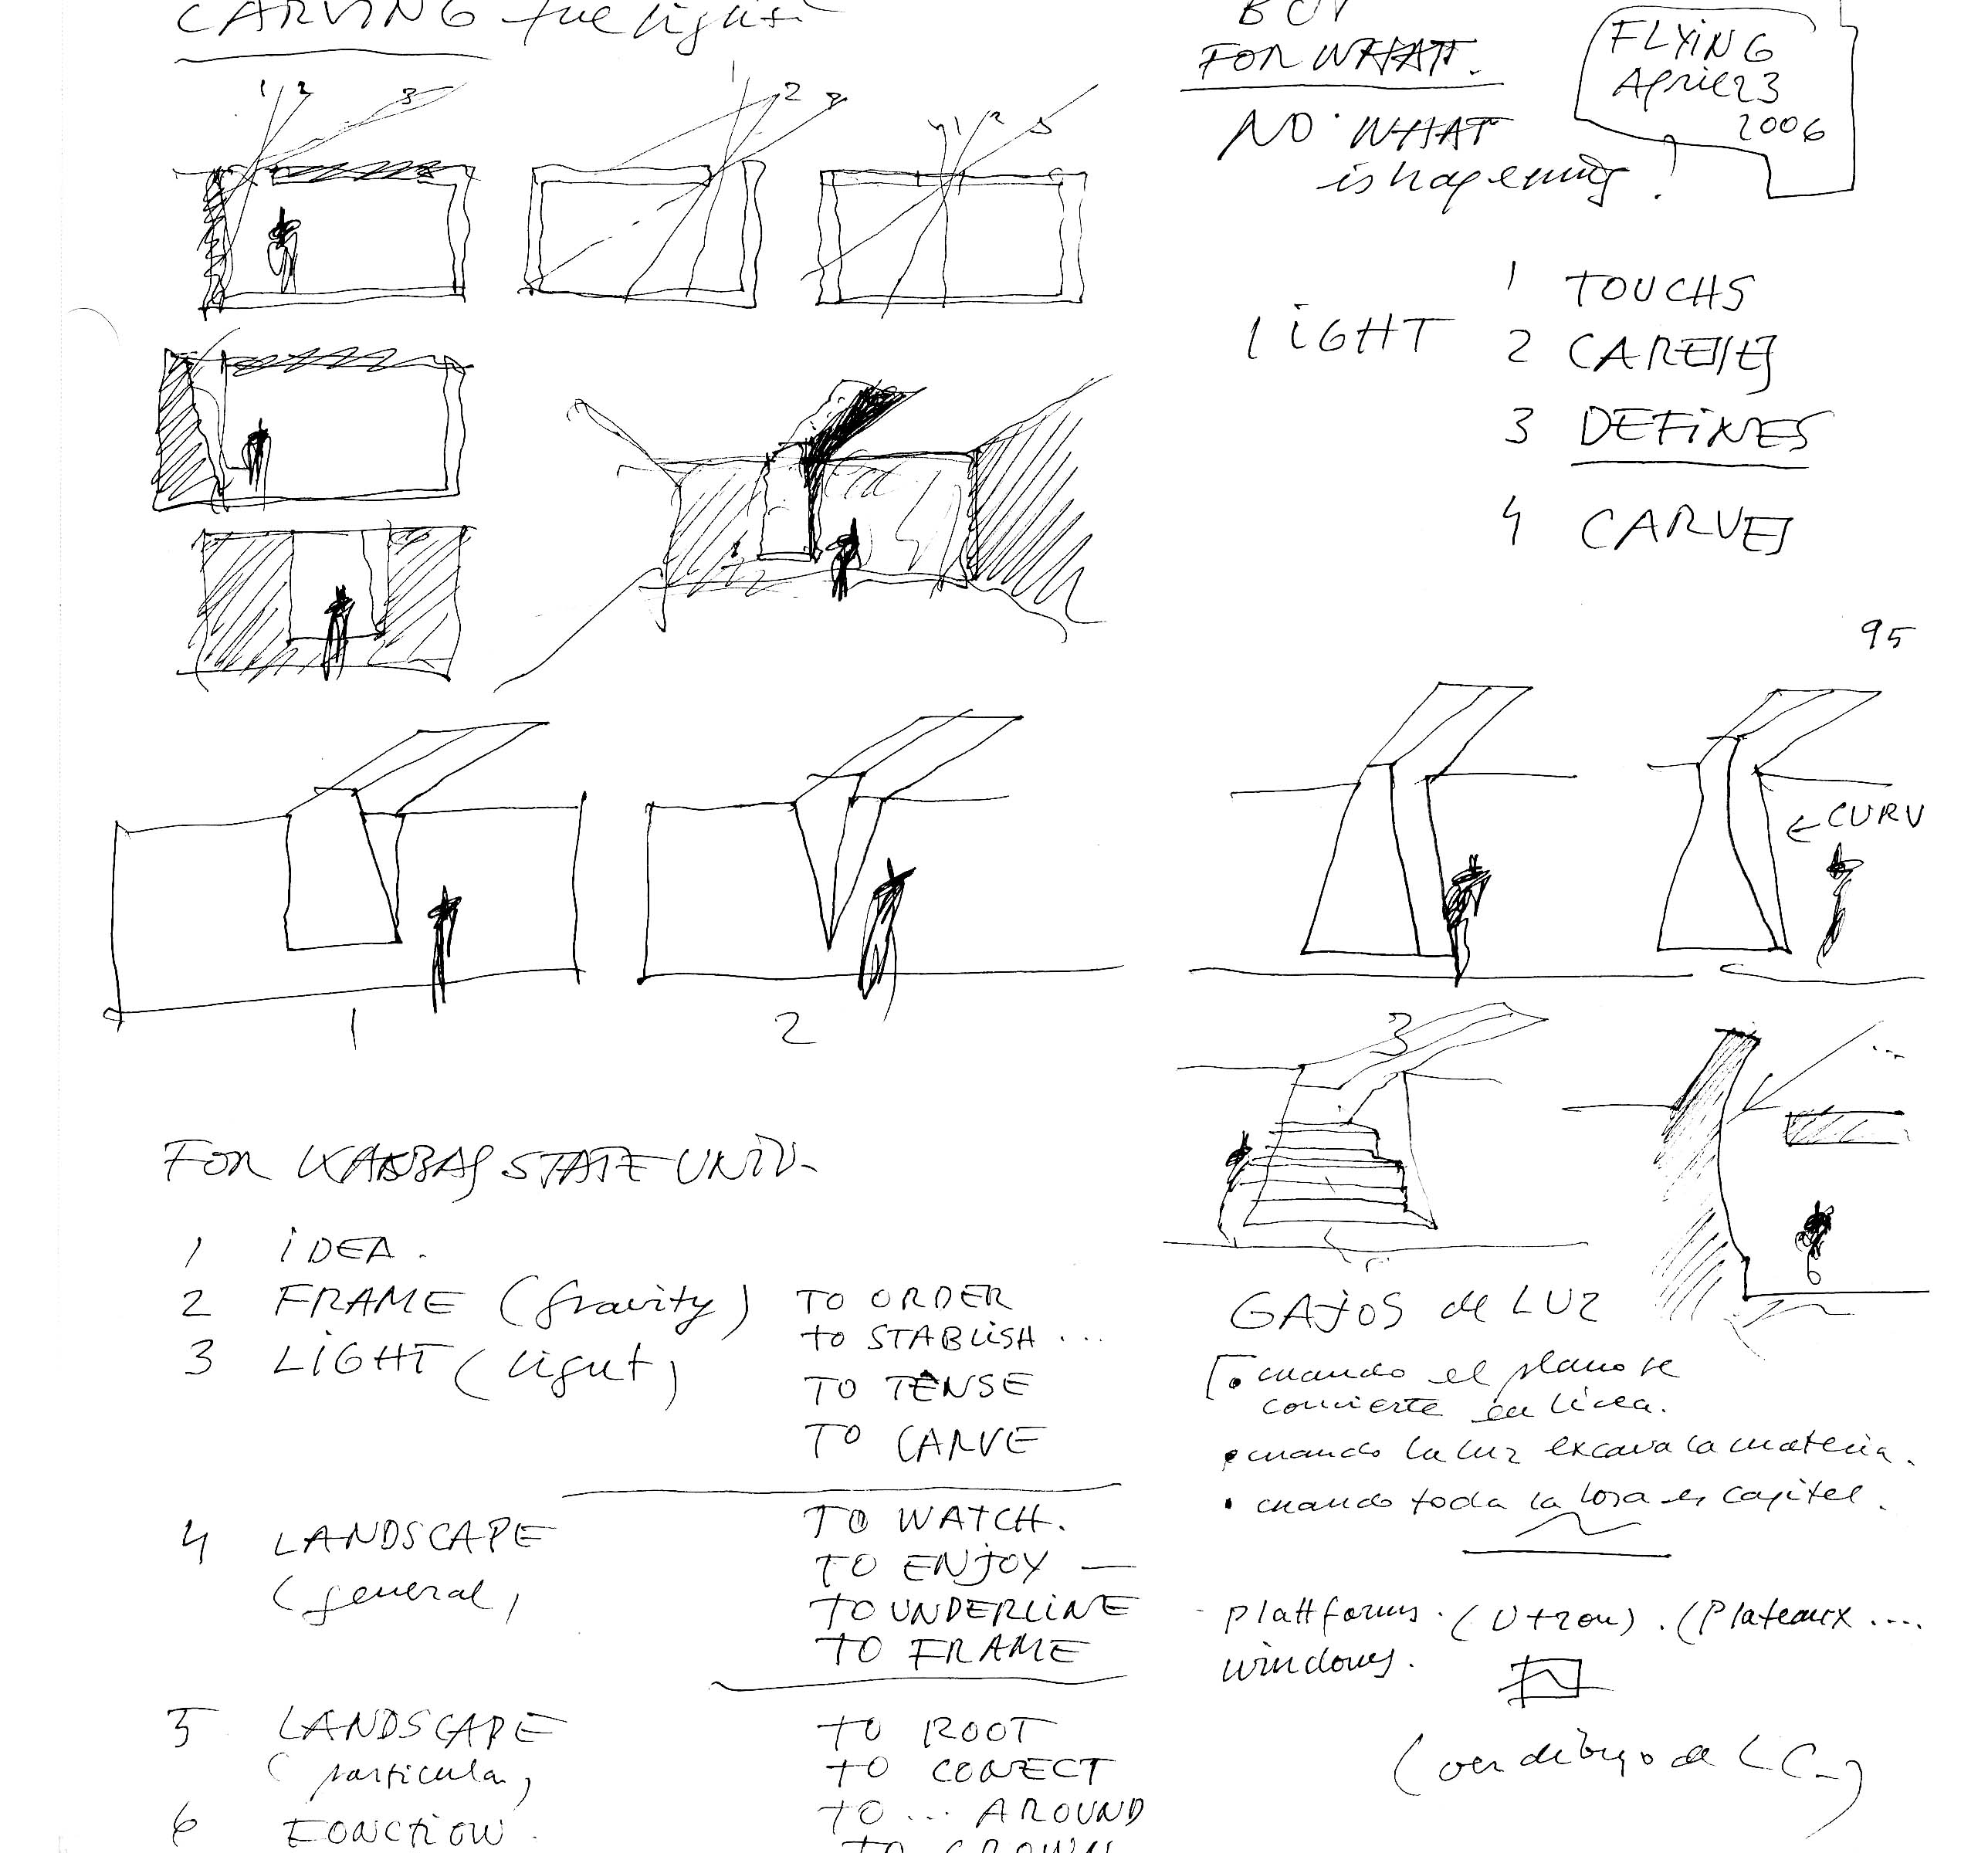 CARVING the light
1 2 3
1 2 3
4 1 2 3
FOR WHAT.
NO WHAT
is hapening!
FLYING
April 23
2006
LIGHT
1 TOUCHS
2 CARESSES
3 DEFINES
4 CARVES
95
← CURV
1
2
3
FOR KANSAS STATE UNIV-
1 iDEA.
2 FRAME (gravity) TO ORDER
TO STABLISH ...
3 LIGHT (light)
TO TENSE
TO CARVE
4 LANDSCAPE
(general)
TO WATCH.
TO ENJOY —
TO UNDERLINE
TO FRAME
5 LANDSCAPE
(particular)
TO ROOT
TO CONECT
TO ... AROUND
TO CROWN
6 FONCTION.
GAJOS de LUZ
• cuando el plano se
convierte en línea.
• cuando la luz excava la materia.
• cuando toda la losa es capitel.
- plattforms. (Utzon). (Plateaux ....
windows.
(ver dibujo de LC-)